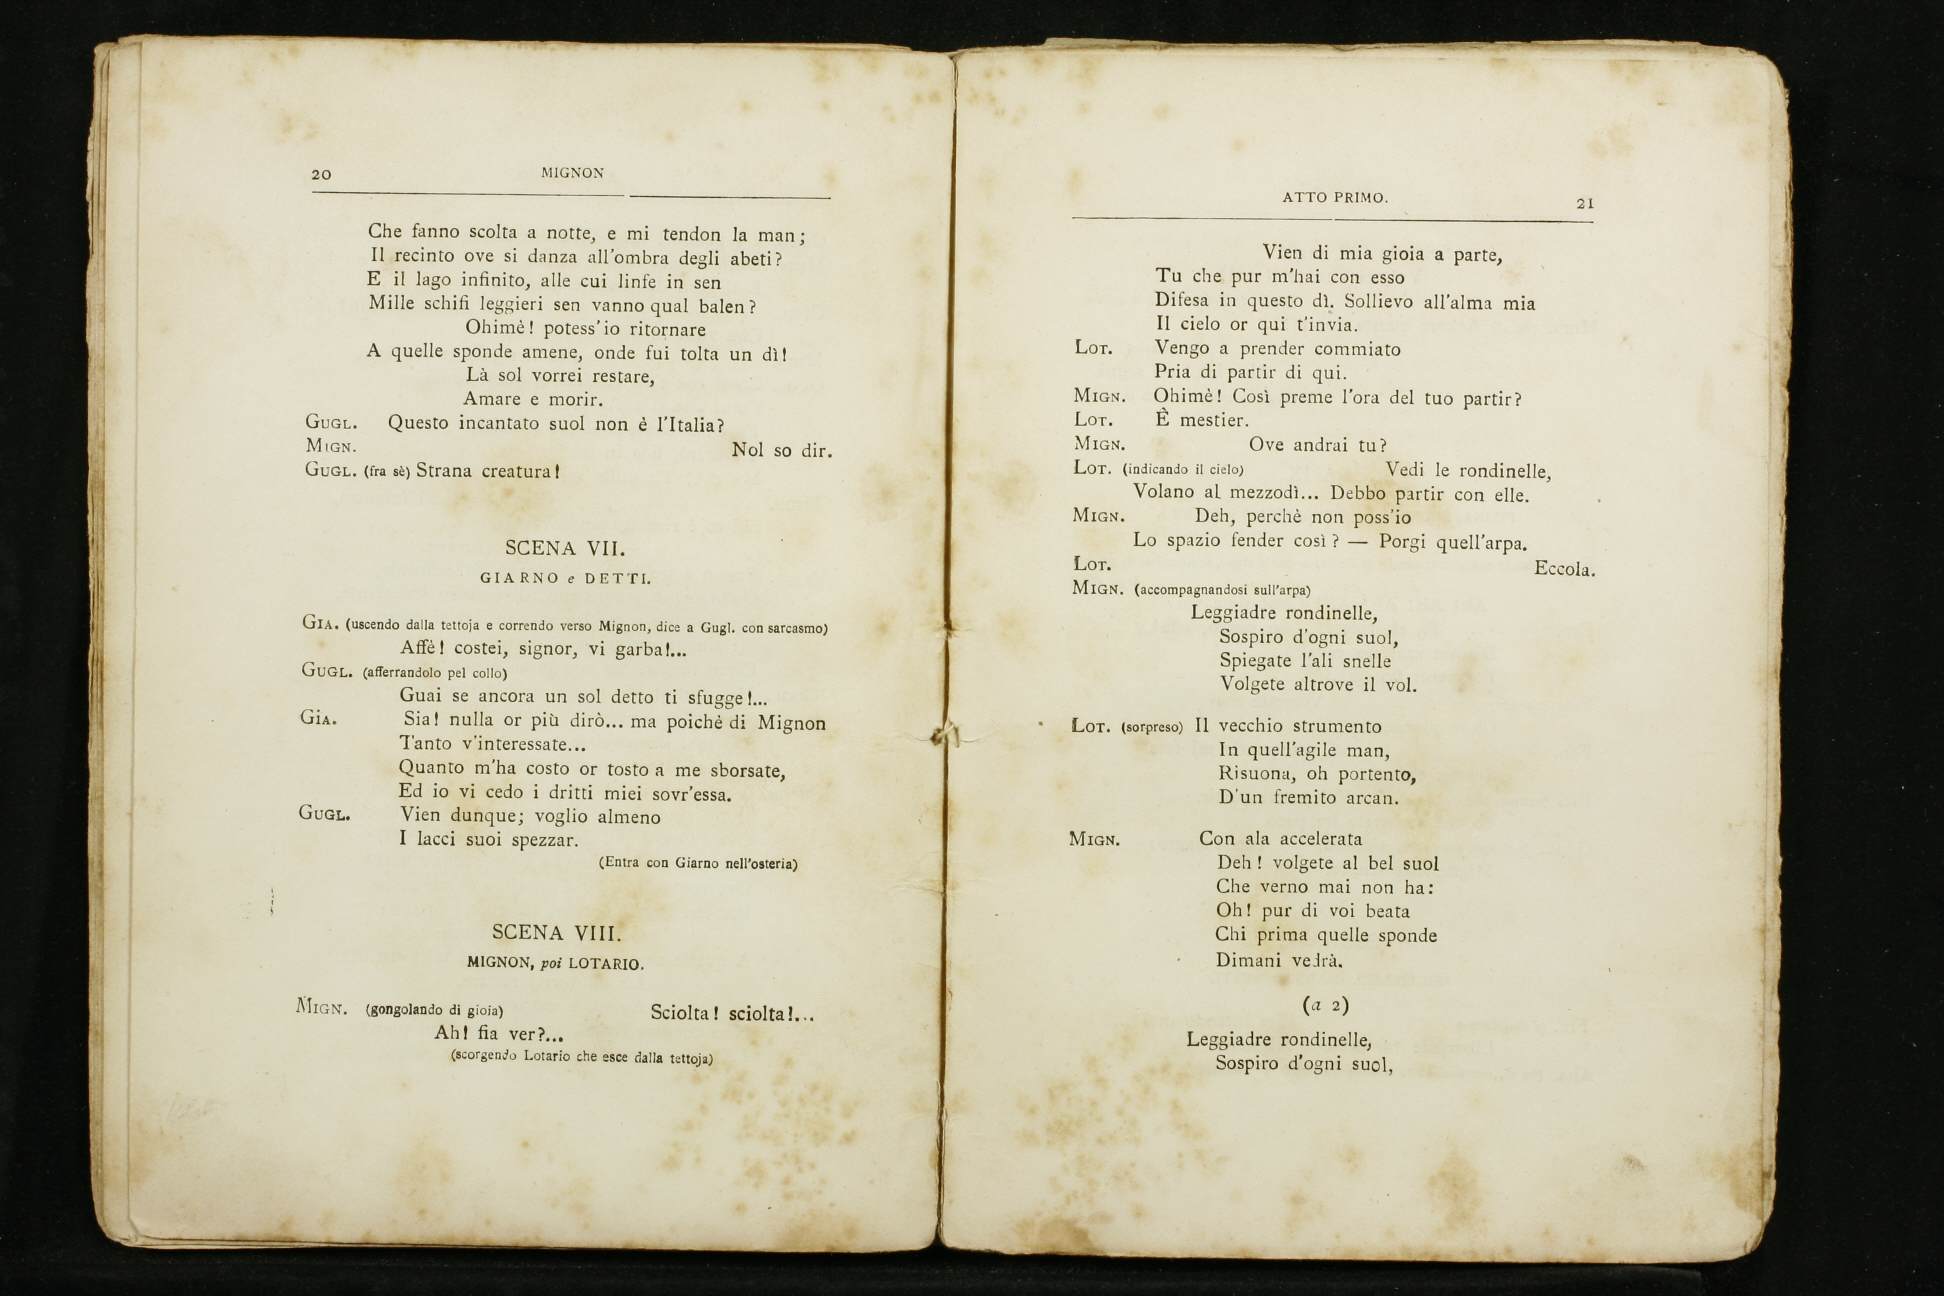 20 MIGNON
Che fanno scolta a notte, e mi tendon la man;
Il recinto ove si danza all'ombra degli abeti?
E il lago infinito, alle cui linfe in sen
Mille schifi leggieri sen vanno qual balen?
Ohimè! potess'io ritornare
A quelle sponde amene, onde fui tolta un dì!
Là sol vorrei restare,
Amare e morir.
GUGL. Questo incantato suol non è l'Italia?
MIGN. Nol so dir.
GUGL. (fra sè) Strana creatura!
SCENA VII.
GIARNO e DETTI.
GIA. (uscendo dalla tettoja e correndo verso Mignon, dice a Gugl. con sarcasmo)
Affè! costei, signor, vi garba!...
GUGL. (afferrandolo pel collo)
Guai se ancora un sol detto ti sfugge!...
GIA. Sia! nulla or più dirò... ma poichè di Mignon
Tanto v'interessate...
Quanto m'ha costo or tosto a me sborsate,
Ed io vi cedo i dritti miei sovr'essa.
GUGL. Vien dunque; voglio almeno
I lacci suoi spezzar.
(Entra con Giarno nell'osteria)
SCENA VIII.
MIGNON, poi LOTARIO.
MIGN. (gongolando di gioia) Sciolta! sciolta!...
Ah! fia ver?...
(scorgendo Lotario che esce dalla tettoja)
ATTO PRIMO. 21
Vien di mia gioia a parte,
Tu che pur m'hai con esso
Difesa in questo dì. Sollievo all'alma mia
Il cielo or qui t'invia.
LOT. Vengo a prender commiato
Pria di partir di qui.
MIGN. Ohimè! Così preme l'ora del tuo partir?
LOT. È mestier.
MIGN. Ove andrai tu?
LOT. (indicando il cielo) Vedi le rondinelle,
Volano al mezzodì... Debbo partir con elle.
MIGN. Deh, perchè non poss'io
Lo spazio fender così? — Porgi quell'arpa.
LOT. Eccola.
MIGN. (accompagnandosi sull'arpa)
Leggiadre rondinelle,
Sospiro d'ogni suol,
Spiegate l'ali snelle
Volgete altrove il vol.
LOT. (sorpreso) Il vecchio strumento
In quell'agile man,
Risuona, oh portento,
D'un fremito arcan.
MIGN. Con ala accelerata
Deh! volgete al bel suol
Che verno mai non ha:
Oh! pur di voi beata
Chi prima quelle sponde
Dimani vedrà.
(a 2)
Leggiadre rondinelle,
Sospiro d'ogni suol,